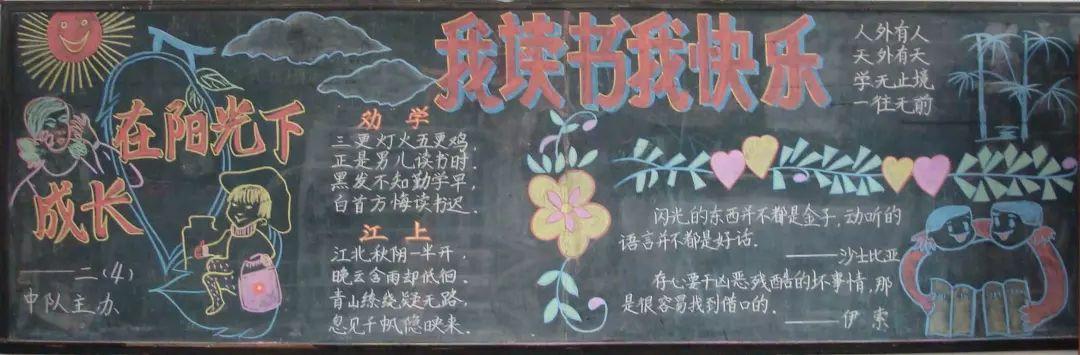 在阳光下
成长
——二(4)
中队主办
我读书我快乐
劝学
三更灯火五更鸡,
正是男儿读书时.
黑发不知勤学早,
白首方悔读书迟.
江上
江北秋阴一半开,
晚云含雨却低徊.
青山缭绕疑无路,
忽见千帆隐映来.
人外有人
天外有天
学无止境
一往无前
闪光的东西并不都是金子,动听的
语言并不都是好话.
——沙士比亚
存心要干凶恶残酷的坏事情,那
是很容易找到借口的.
——伊索